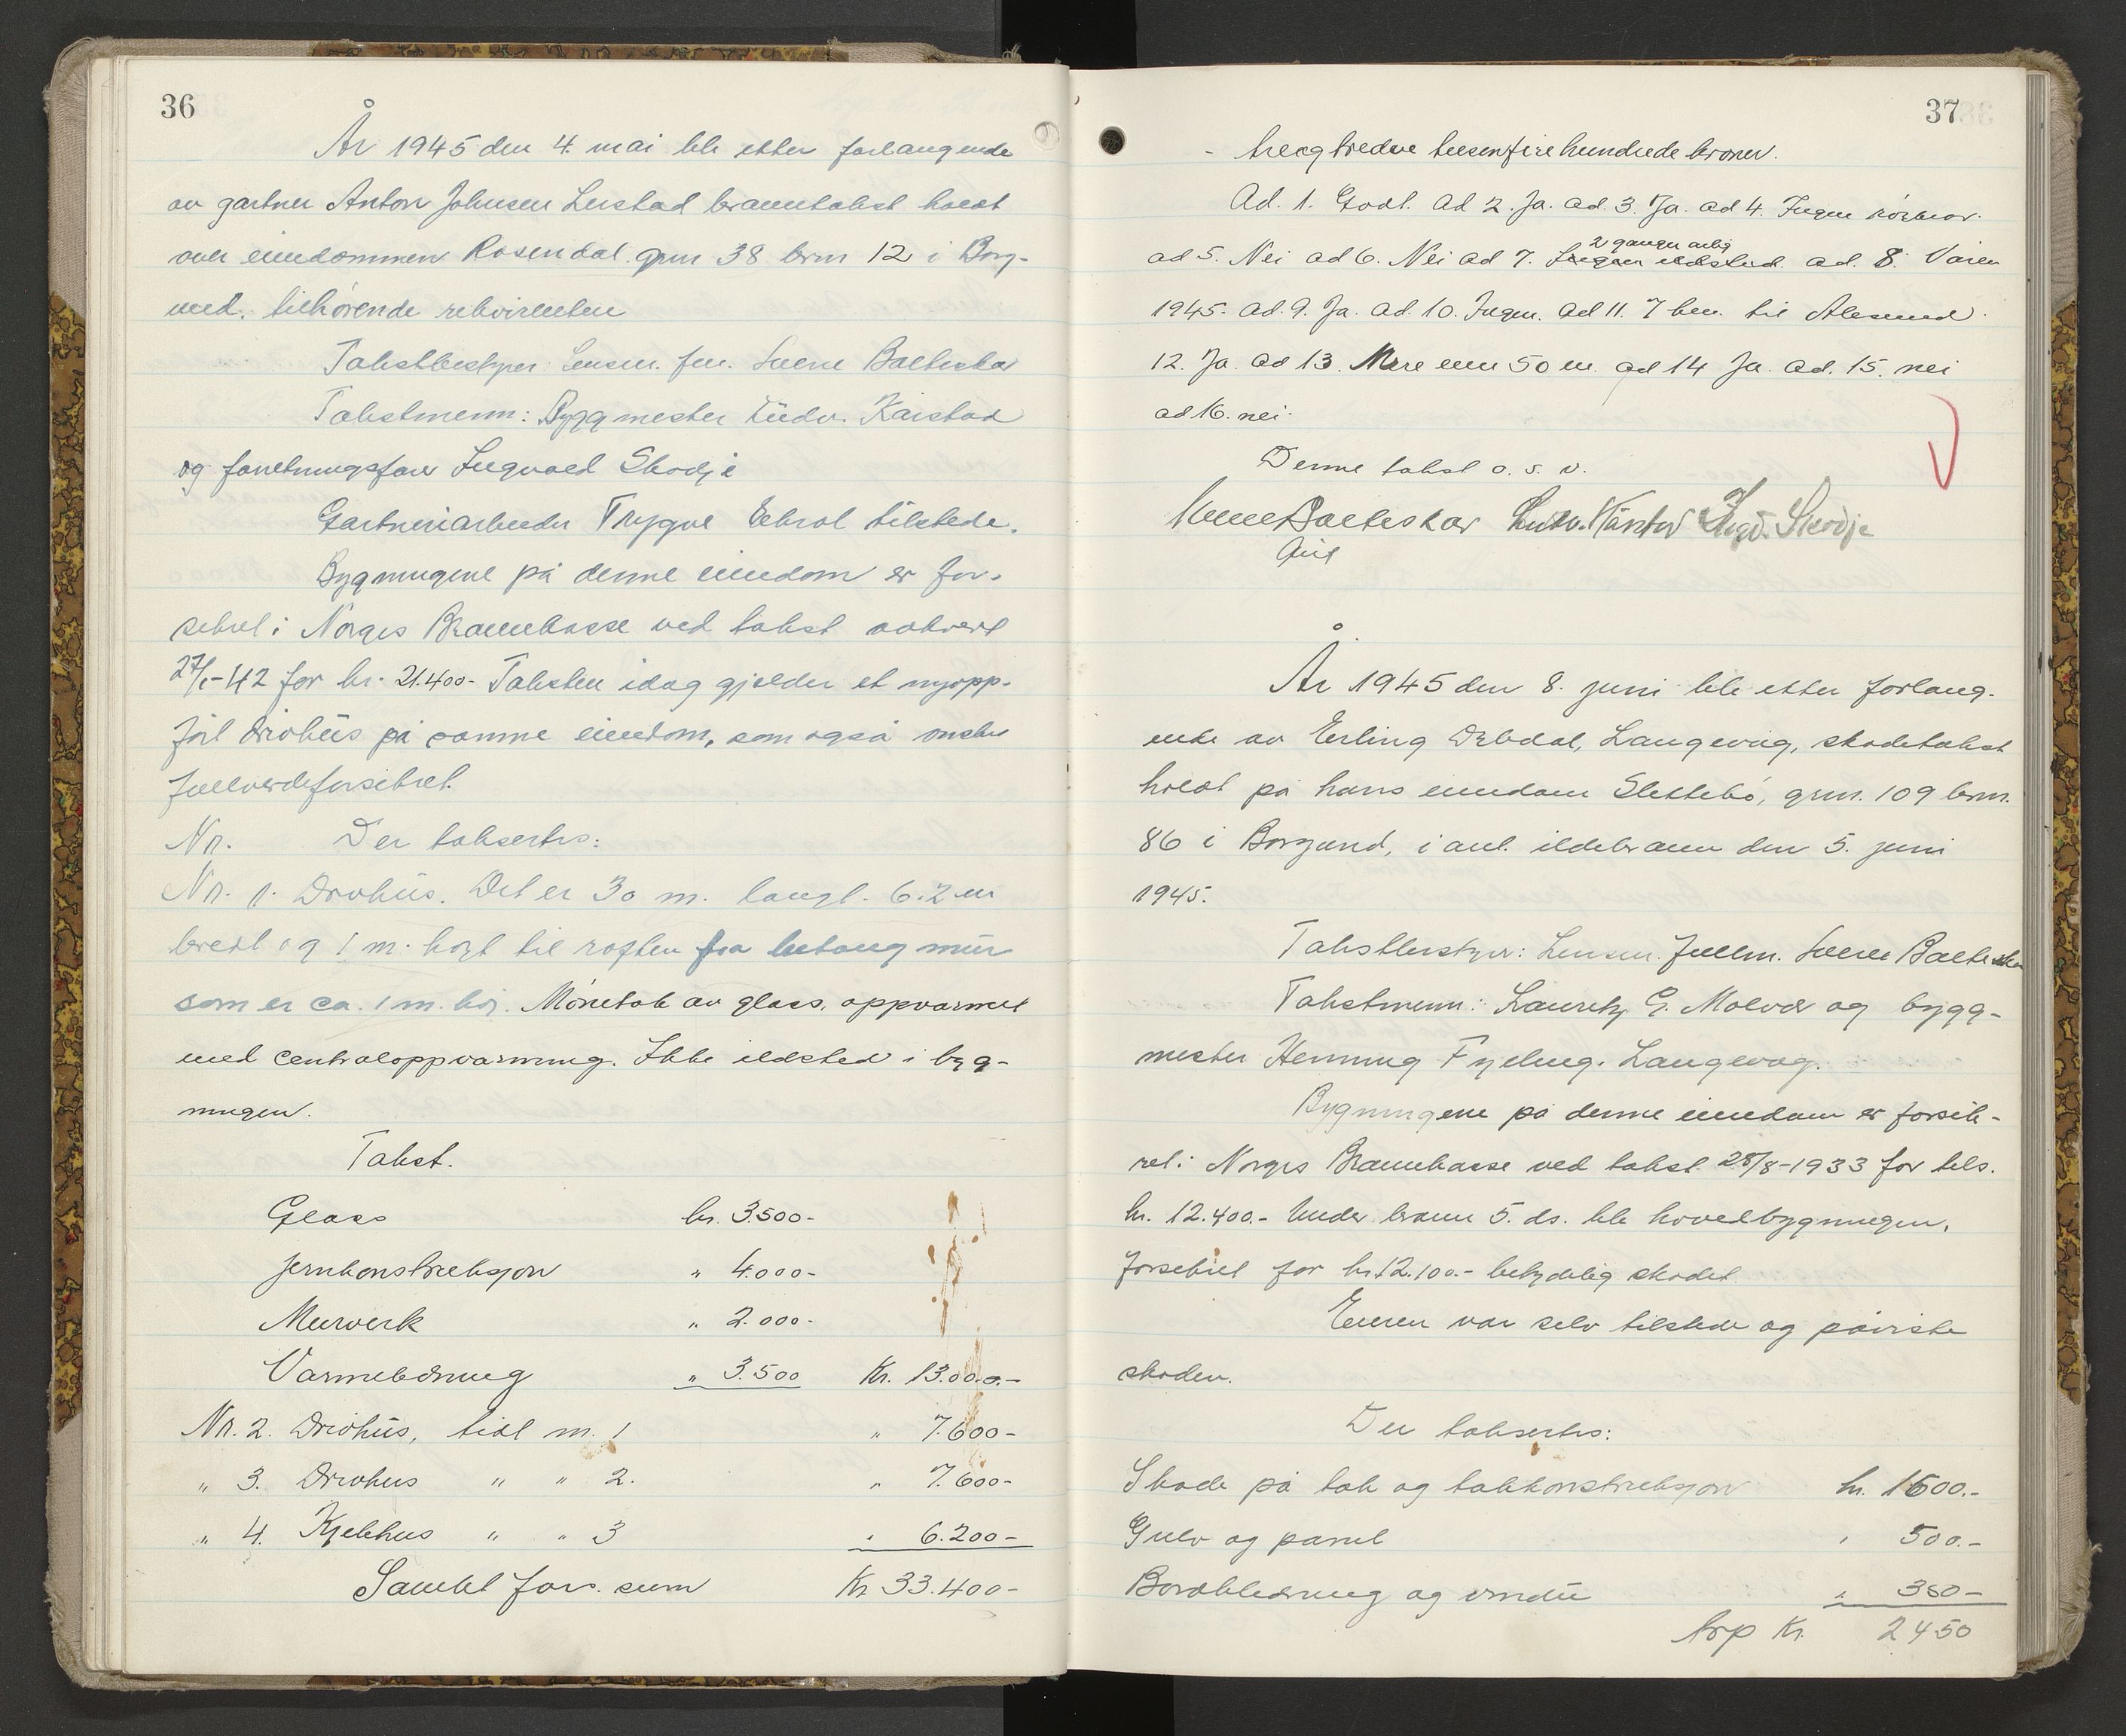 36
År 1945 den 4. mai ble etter forlangende
av gartner Anton Johnsen Lerstad branntakst holdt
over eiendommen Rosendal gnr 38 brn 12 i Borg-
und. tilhørende rekvirenten
Takstbestyrer Lensm. fm. Sverre Balteskar
Takstmenn: Byggmester Ludv. Karstad
og forretningsfører Ingvald Skodje
Gartneriarbeider Trygve tilstede.
Bygningene på denne eiendom er for-
sikret i Norges Brannkasse ved takst avholdt
-42 for kr. 21.400- Taksten idag gjelder et nyopp-
ført drivhus på samme eiendom, som også ønskes
fullverdiforsikret.
Nr. Der takseres:
Nr. 1. Drivhus. Det er 30 m. langt. 6.2 m
bredt og 1 m. høgt til raften fra betong mur
som er ca. 1 m. høi. Mønetak av glass, oppvarmet
med centraloppvarming. Ikke ildsted i byg-
ningen.
Takst.
Glass kr. 3.500-
Jernkonstruksjon " 4.000-
Murverk " 2.000-
Varmeledning " 3.500 Kr. 13.000.-
Nr. 2. Drivhus, tidl m. 1 " 7.600-
" 3. Drivhus " " 2. " 7.600-
" 4. Kjelehus " " 3 " 6.200-
Samlet fors. sum Kr 33.400-
37
- treogtredve tusenfirehundrede kroner.
Ad. 1. Godt. Ad 2. Ja. ad. 3. Ja. ad 4. Ingen
2 ganger årlig
ad 5. Nei ad 6. Nei ad 7. Ingen ildsted. ad. 8. Våren
1945. ad. 9. Ja. ad. 10. Ingen. ad 11. 7 km. til Ålesund
12. Ja. ad 13. Mere enn 50 m. ad 14 Ja. ad. 15. nei
ad 16. nei.
Denne takst o. s. v.
Sverre Balteskar Ludv. Karstad Ingv. Skodje
År 1945 den 8. juni ble etter forlang-
ende av Erling Devdal, Langevåg, skadetakst
holdt på hans eiendom Slettebø, gnr. 109 brn.
86 i Borgund, i anl. ildebrann den 5. juni
1945.
Takstbestyrer: Lensm. fullm. Sverre Balteskar
Takstmenn: Lauritz G. Molvær og bygg-
mester Henning Fylling. Langevåg.
Bygningene på denne eiendom er forsik-
ret i Norges Brannkasse ved takst 28/8-1933 for tils.
kr. 12.400.- Under brann 5. ds. ble hovedbygningen,
forsikret for kr. 12.100.- betydelig skadet
Eieren var selv tilstede og påviste
skaden.
Der takseres:
Skade på tak og takkonstruksjon kr. 1600.-
Gulv og panel " 500.-
Bordkledning og vindu " 350-
trp Kr. 2450